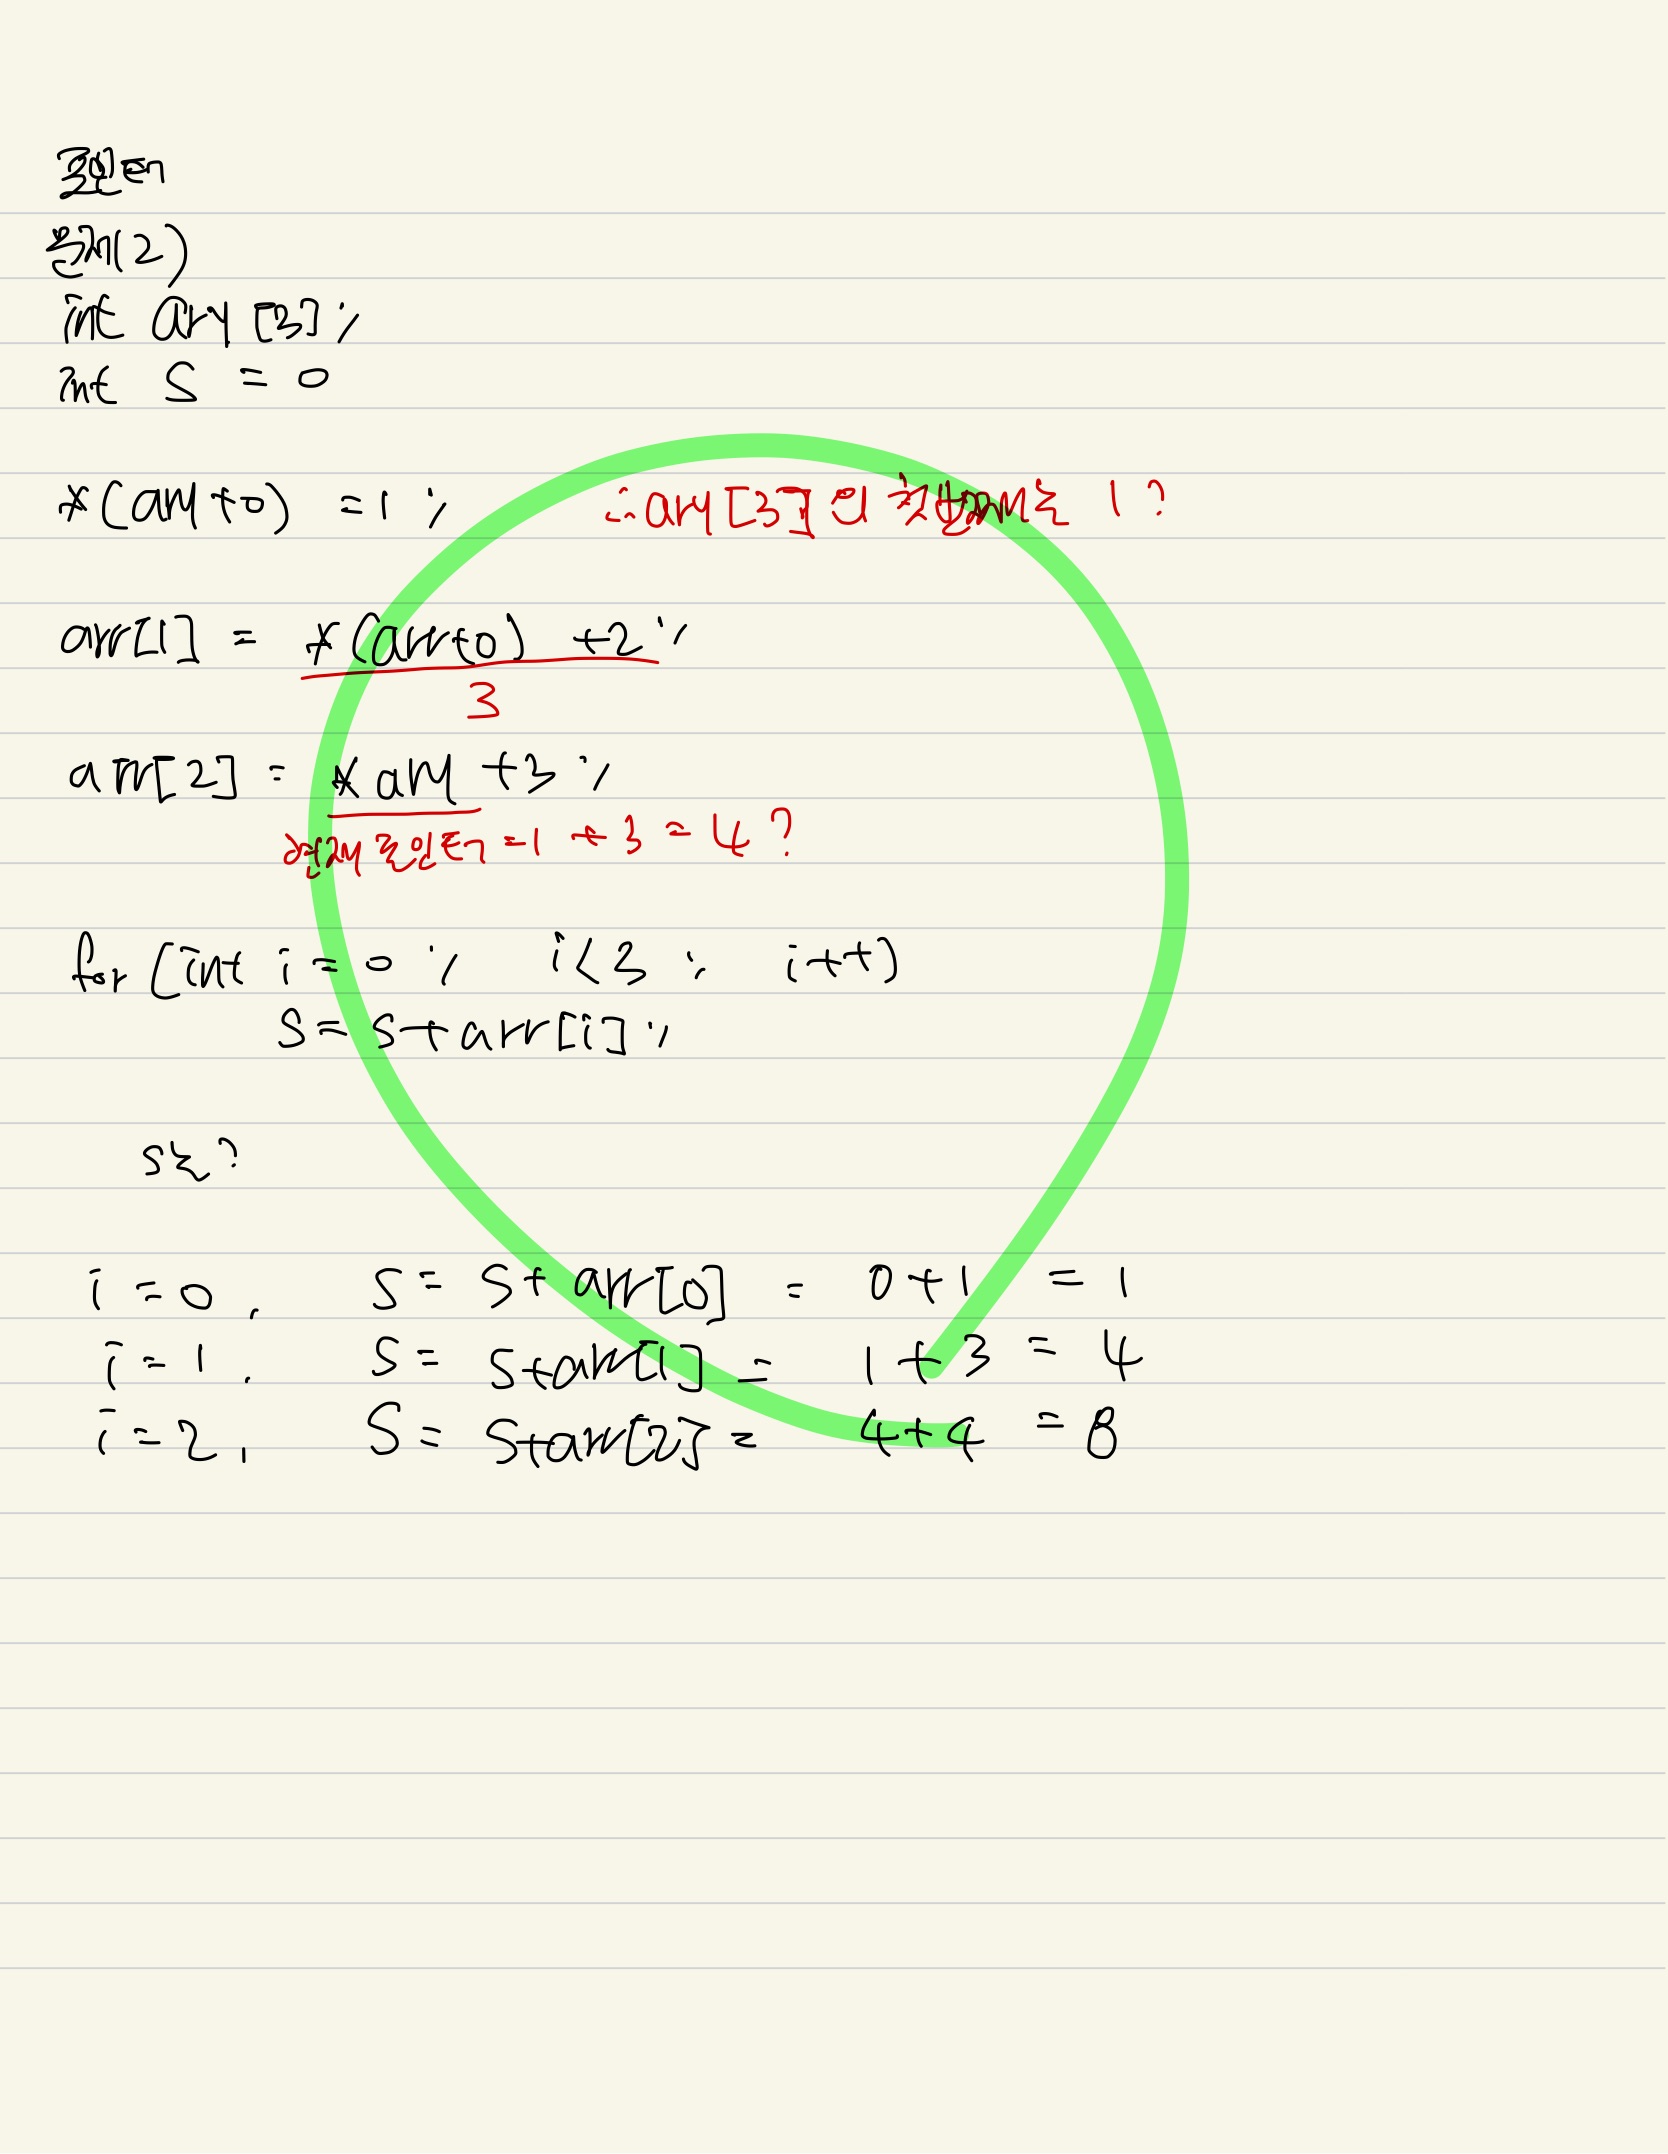 포인터
문제(2)
int ary [3];
int S = 0
*(arr+0) =1;
∴ ary[3]의 첫번째는 1?
arr[1] = *(arr+0) +2;
3
arr[2] = *arr +3;
현재 포인터 =1 +3 =4?
for (int i=0; i<3; i++)
S=S+arr[i];
S는?
i=0, S= S+arr[0] = 0+1 =1
i=1, S= S+arr[1] = 1+3 =4
i=2, S= S+arr[2] = 4+4 =8